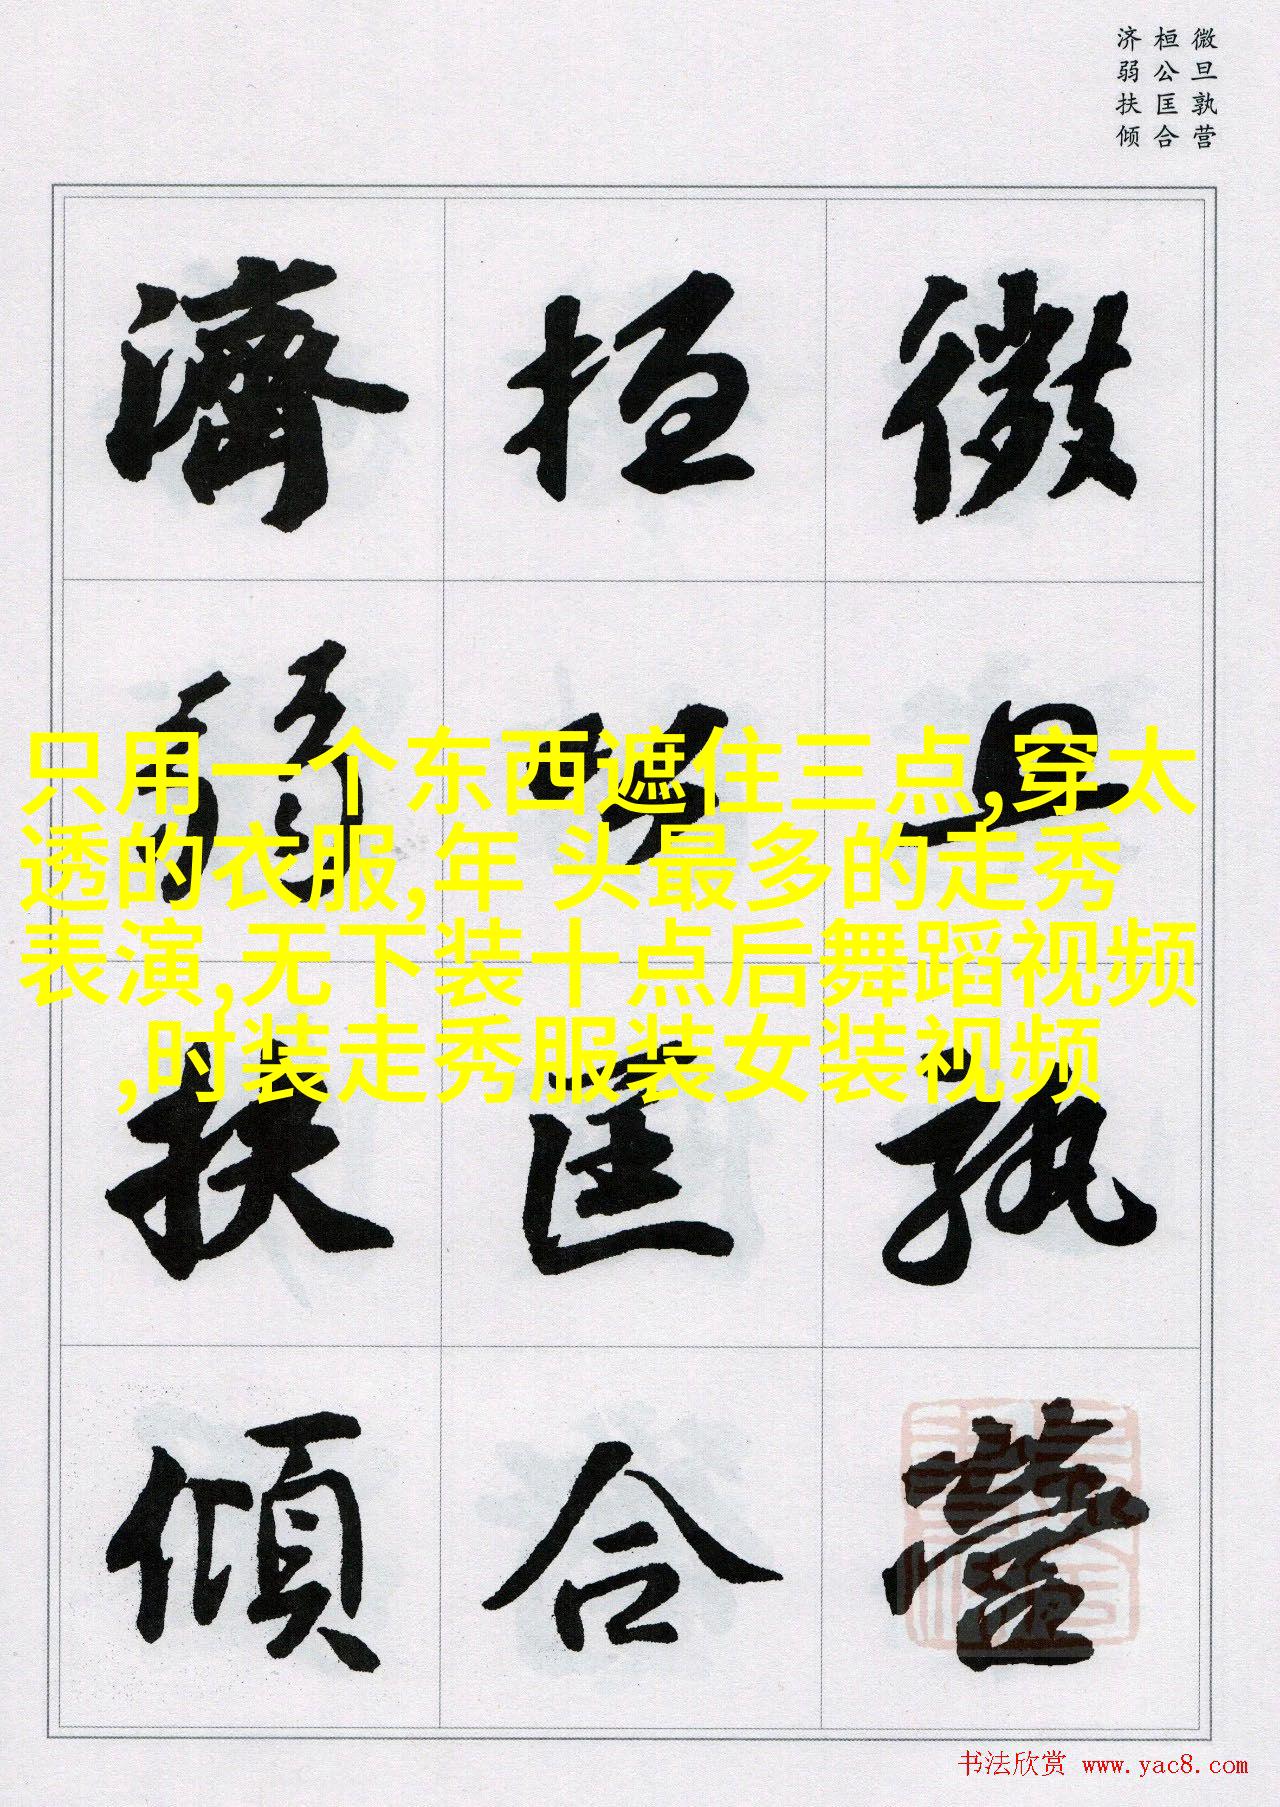 微旦孰营
桓公匡合
济弱扶倾
微旦孰營
桓公匡合
濟弱扶傾
只用一个东西遮住三点,穿太
透的衣服,年 头最多的走秀
表演,无下装十点后舞蹈视频
,时装走秀服装女装视频
书法欣赏 www.yac8.com